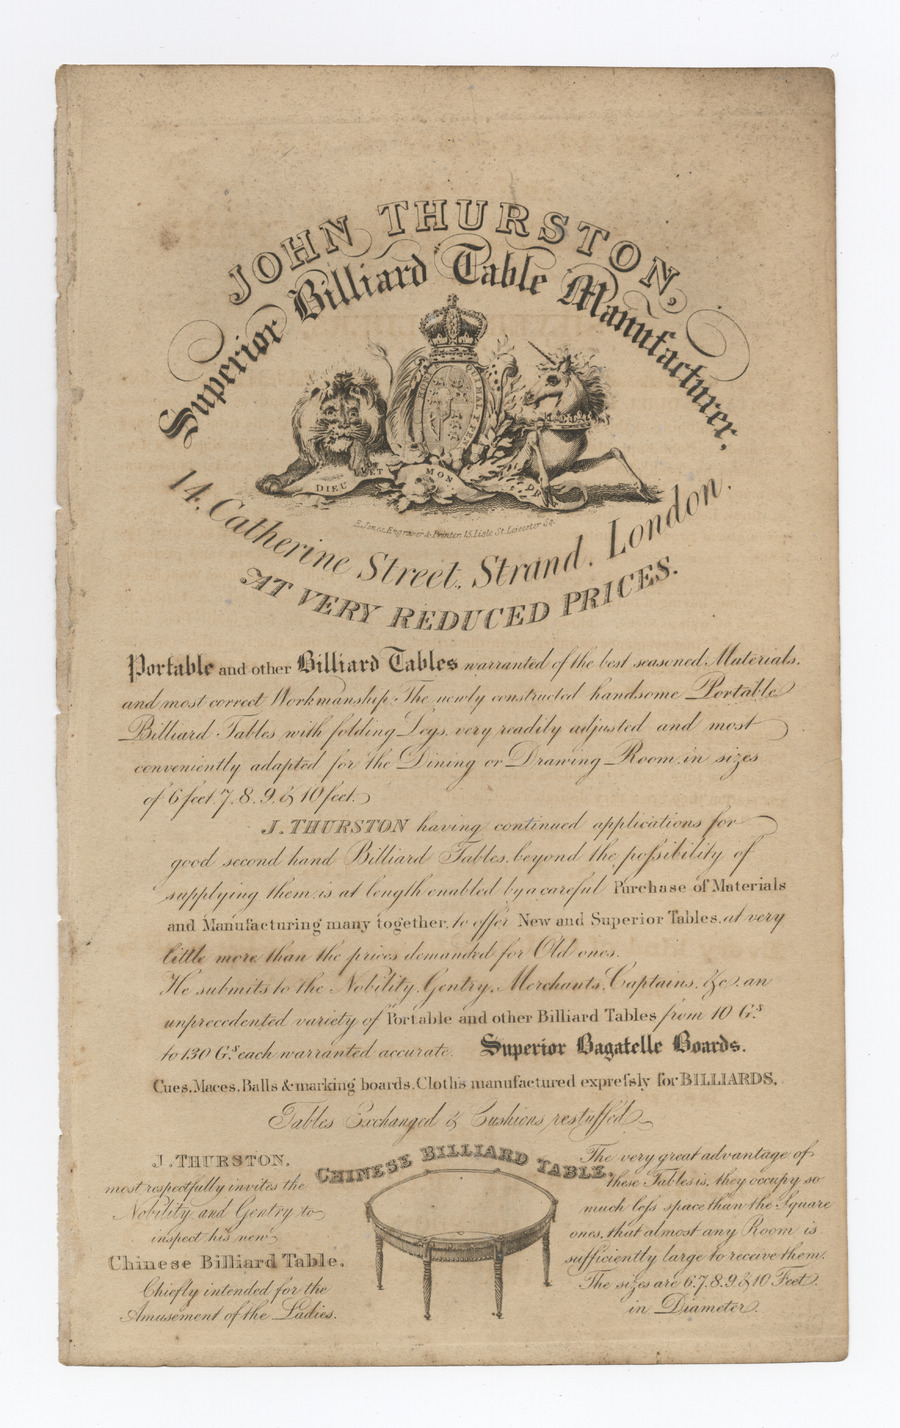 JOHN THURSTON,
Superior Billiard Table Manufacturer,
DIEU ET MON DR
E. Jones, Engraver & Printer 15, Lisle St. Leicester Sq.
14, Catherine Street, Strand, London.
AT VERY REDUCED PRICES.
Portable and other Billiard Tables warranted of the best seasoned Materials,
and most correct Workmanship. The newly constructed handsome Portable
Billiard Tables with folding Legs, very readily adjusted and most
conveniently adapted for the Dining or Drawing Room, in sizes
of 6 feet, 7, 8, 9, & 10 feet.
J. THURSTON having continued applications for
good second hand Billiard Tables, beyond the poſsibility of
supplying them, is at length enabled by a careful Purchase of Materials
and Manufacturing many together, to offer New and Superior Tables, at very
little more than the prices demanded for Old ones.
He submits to the Nobility, Gentry, Merchants, Captains, &c. an
unprecedented variety of Portable and other Billiard Tables from 10 Gs.
to 130 Gs. each warranted accurate. Superior Bagatelle Boards.
Cues, Maces, Balls & marking boards, Cloths manufactured expreſsly for BILLIARDS.
Tables Exchanged & Cushions restuffed
J. THURSTON,
most respectfully invites the
Nobility and Gentry to
inspect his new
Chinese Billiard Table,
Chiefly intended for the
Amusement of the Ladies.
CHINESE BILLIARD TABLE,
The very great advantage of
these Tables is, they occupy so
much leſs space than the Square
ones, that almost any Room is
sufficiently large to receive them.
The sizes are 6, 7, 8, 9, & 10 Feet
in Diameter.